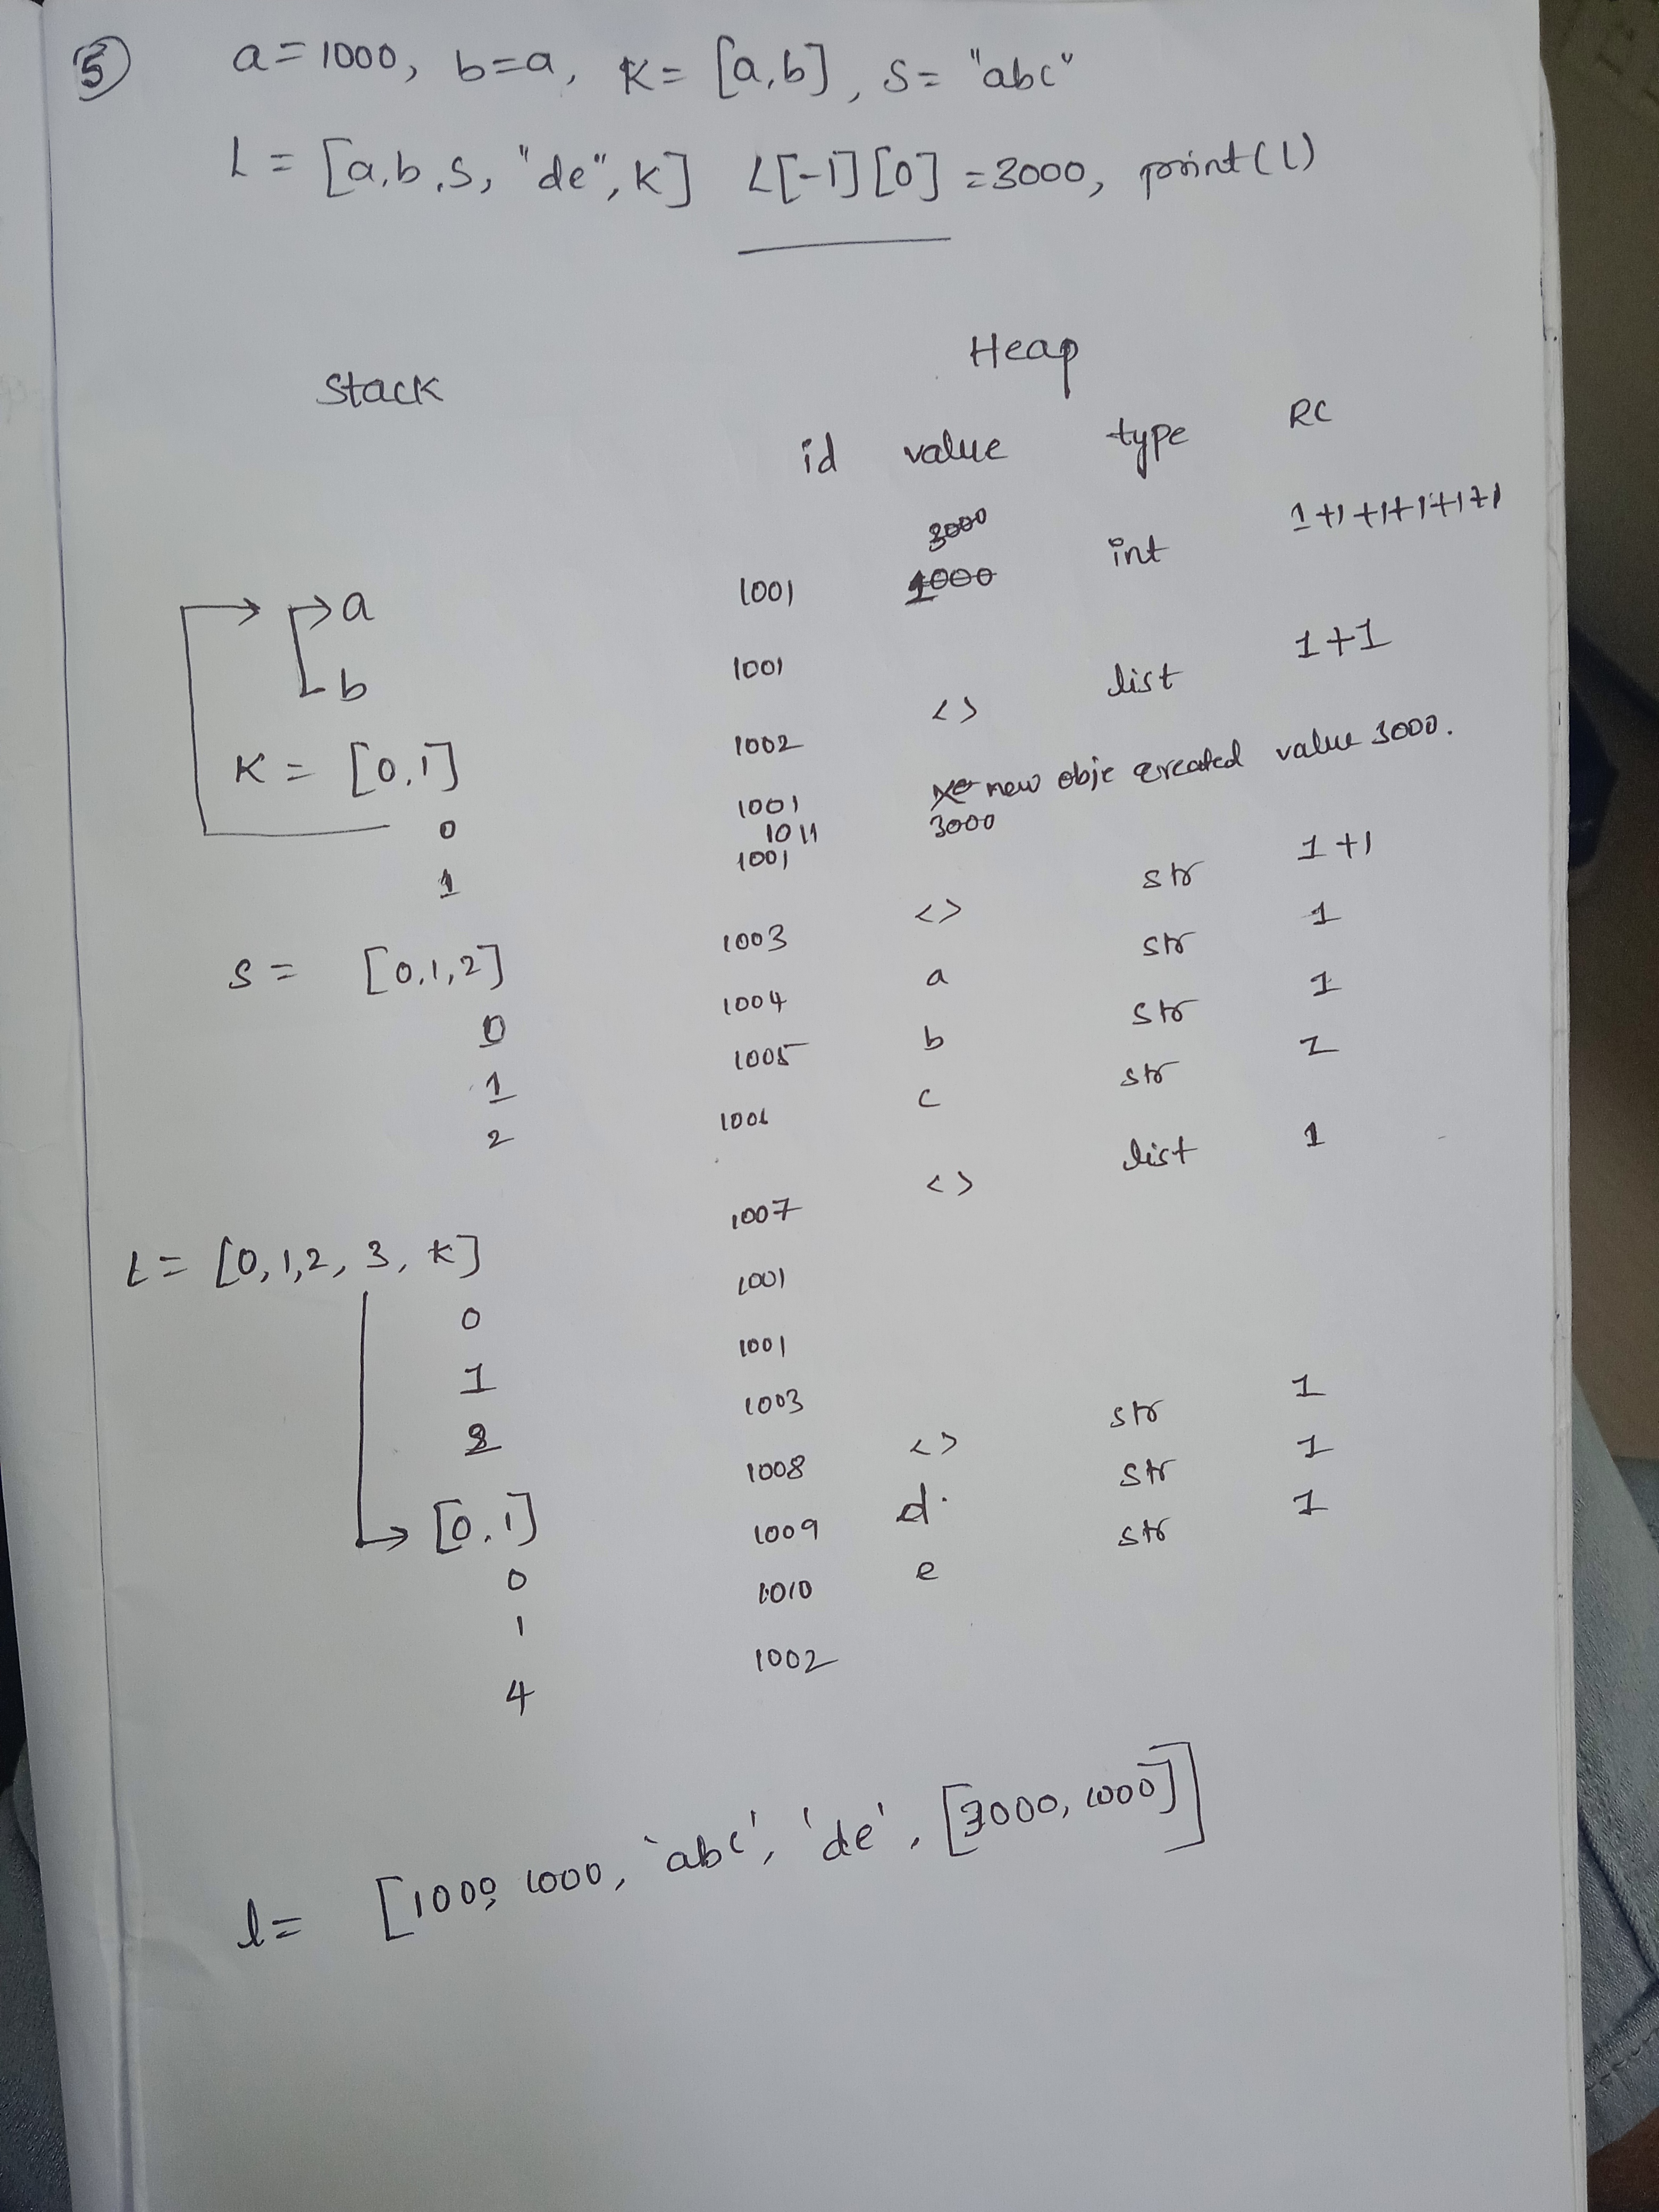 5 a=1000, b=a, K= [a,b], S= "abc"
L = [a,b,S, "de", K] L[-1][0] =3000, print(l)
Stack Heap
id value type RC
3000
a 1001 1000 int 1+1+1+1+1+1
b 1001
K = [0,1] 1002 <> list 1+1
0 1001 new obje created value 3000.
1011 3000
1 1001
S = [0,1,2] 1003 <> str 1+1
0 1004 a str 1
1 1005 b str 1
2 1006 c str 1
L= [0,1,2, 3, K] 1007 <> list 1
0 1001
1 1001
2 1003
[0,1] 1008 <> str 1
0 1009 d str 1
1 1010 e str 1
4 1002
l= [1000, 1000, 'abc', 'de', [3000, 1000]]